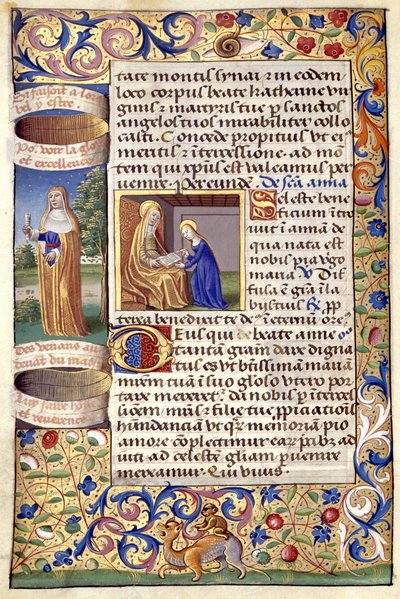 tate montis synai et in eodem
loco corpus beate katherine vir
ginis et martyris tue per sanctos
angelos tuos mirabiliter collo
casti Concede propitius vt ei
meritis et intercessione ad mo
tem qui xpus est valeamus per
uenire. Per eunde. De scā anna
Celeste bene
ficium ī tro
iuit ī annā de
qua nata est
nobis pia virgo
maria. V Dif
fusa est grā ī la
bijs tuis R prop
terea benedixit te deus īn eternū
Deus qui beate anne
tantam grām dare digna
tus es vt btissimam mariā
matrem tuā ī suo gloso vtero por
tare mereret da nobis per īterces
sionem matris et filie tue
habundanciā vt quarum memoriam pio
amore cōplectimur earum precibus ad
celestē gliam puenire
mereamur. Qui viuis.
Po voir la gloi
et excellence
Des venans au
et reuerence